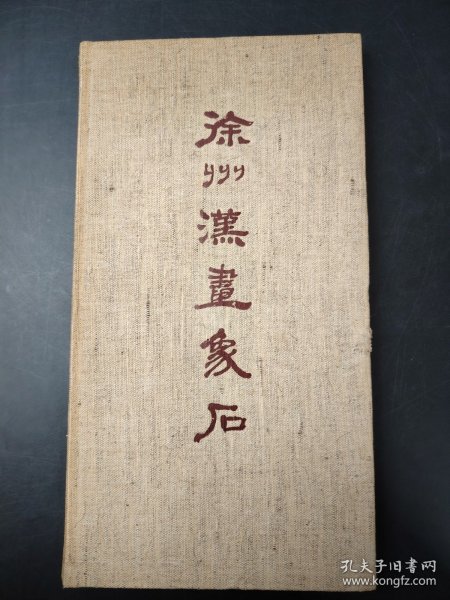 徐州漢畫象石
孔夫子旧书网
www.kongfz.com